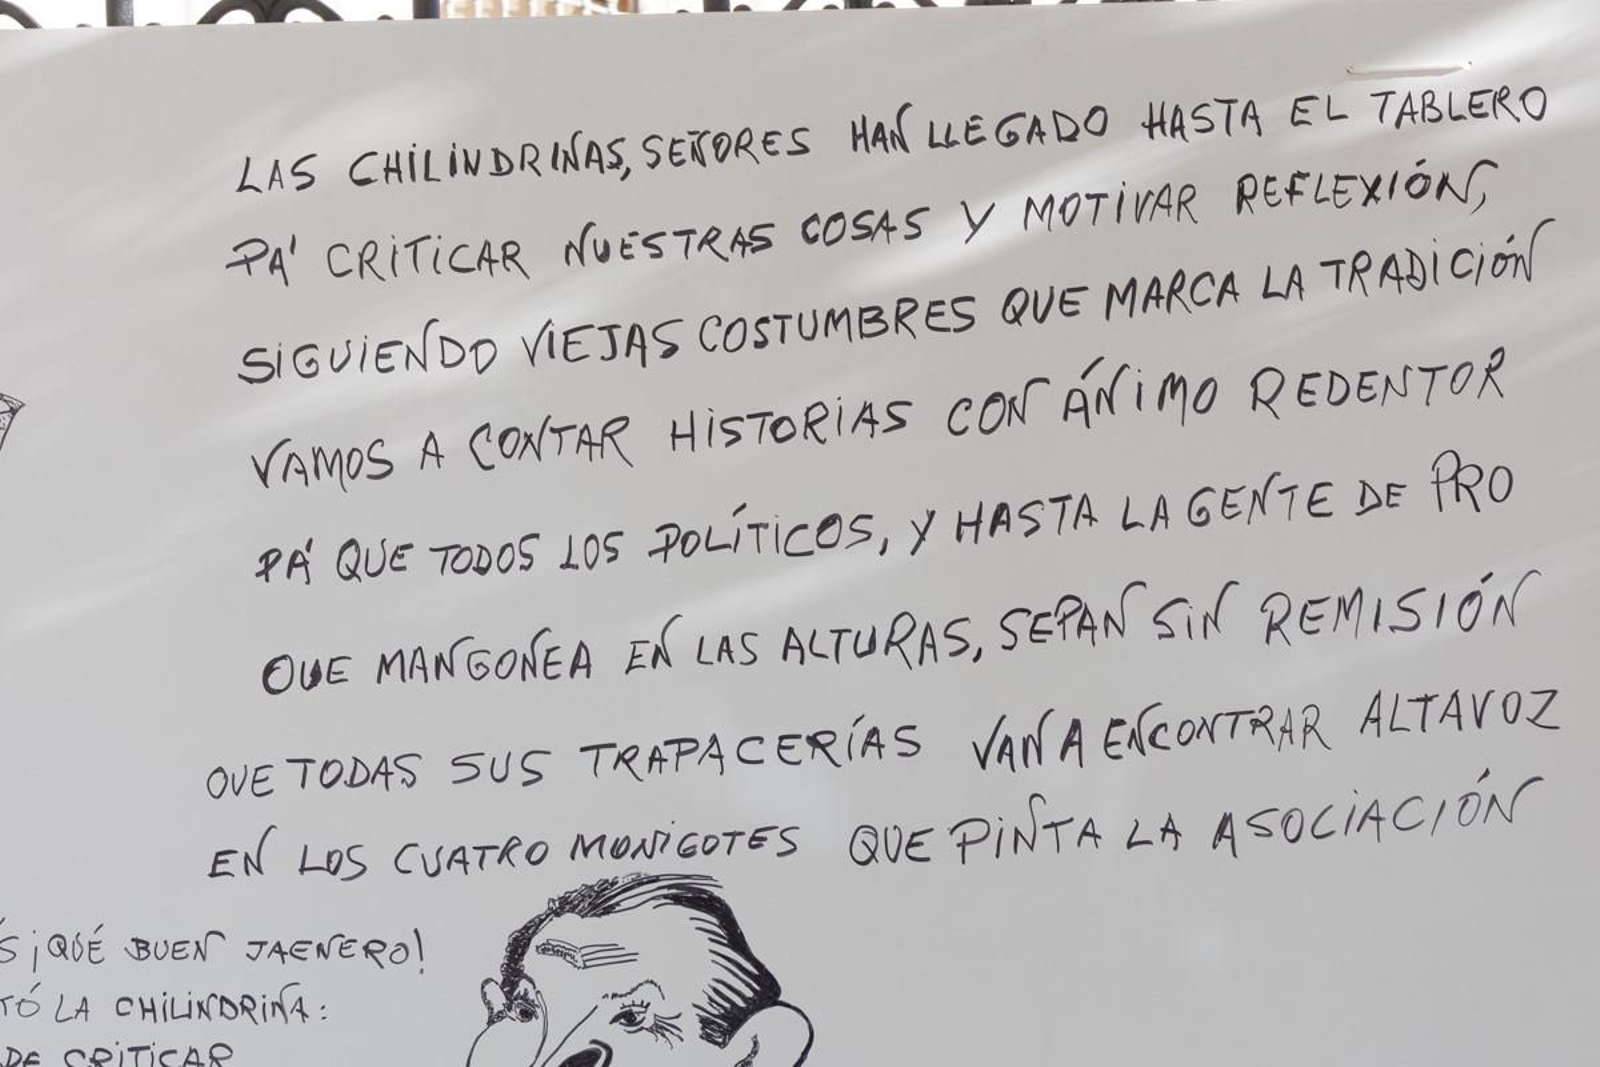 LAS CHILINDRINAS, SEÑORES HAN LLEGADO HASTA EL TABLERO
PA' CRITICAR NUESTRAS COSAS Y MOTIVAR REFLEXIÓN,
SIGUIENDO VIEJAS COSTUMBRES QUE MARCA LA TRADICIÓN
VAMOS A CONTAR HISTORIAS CON ÁNIMO REDENTOR
PA' QUE TODOS LOS POLÍTICOS, Y HASTA LA GENTE DE PRO
QUE MANGONEA EN LAS ALTURAS, SEPAN SIN REMISIÓN
QUE TODAS SUS TRAPACERÍAS VAN A ENCONTRAR ALTAVOZ
EN LOS CUATRO MONIGOTES QUE PINTA LA ASOCIACIÓN
¡QUÉ BUEN JAENERO!
LA CHILINDRINA:
DE CRITICAR